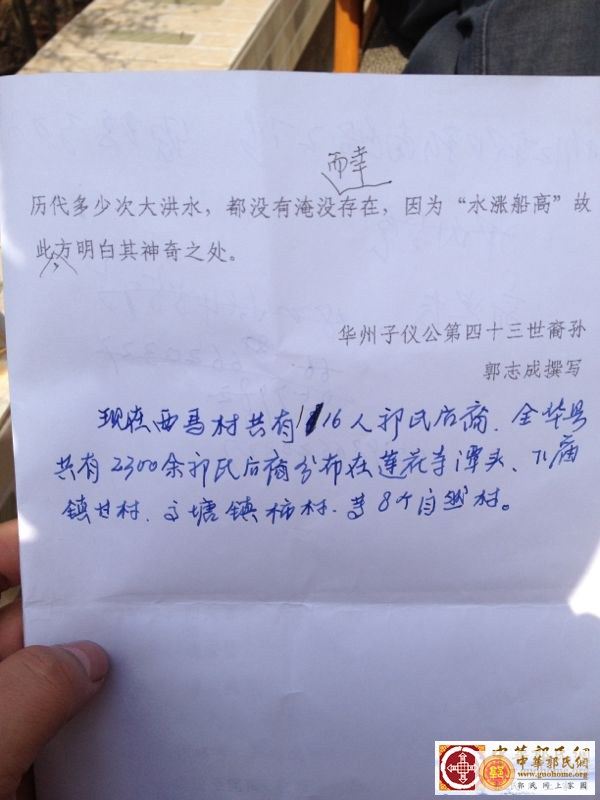 而幸
历代多少次大洪水，都没有淹没存在，因为“水涨船高”故
此方明白其神奇之处。
华州子仪公第四十三世裔孙
郭志成撰写
现在西马村共有116人郭氏后裔、全华县
共有2300余郭氏后裔分布在莲花寺潭头、下庙
镇甘村、高塘镇柿村、等8个自然村。
中华郭氏網
中華郭氏網
www.guohome.org
郭氏网上家园